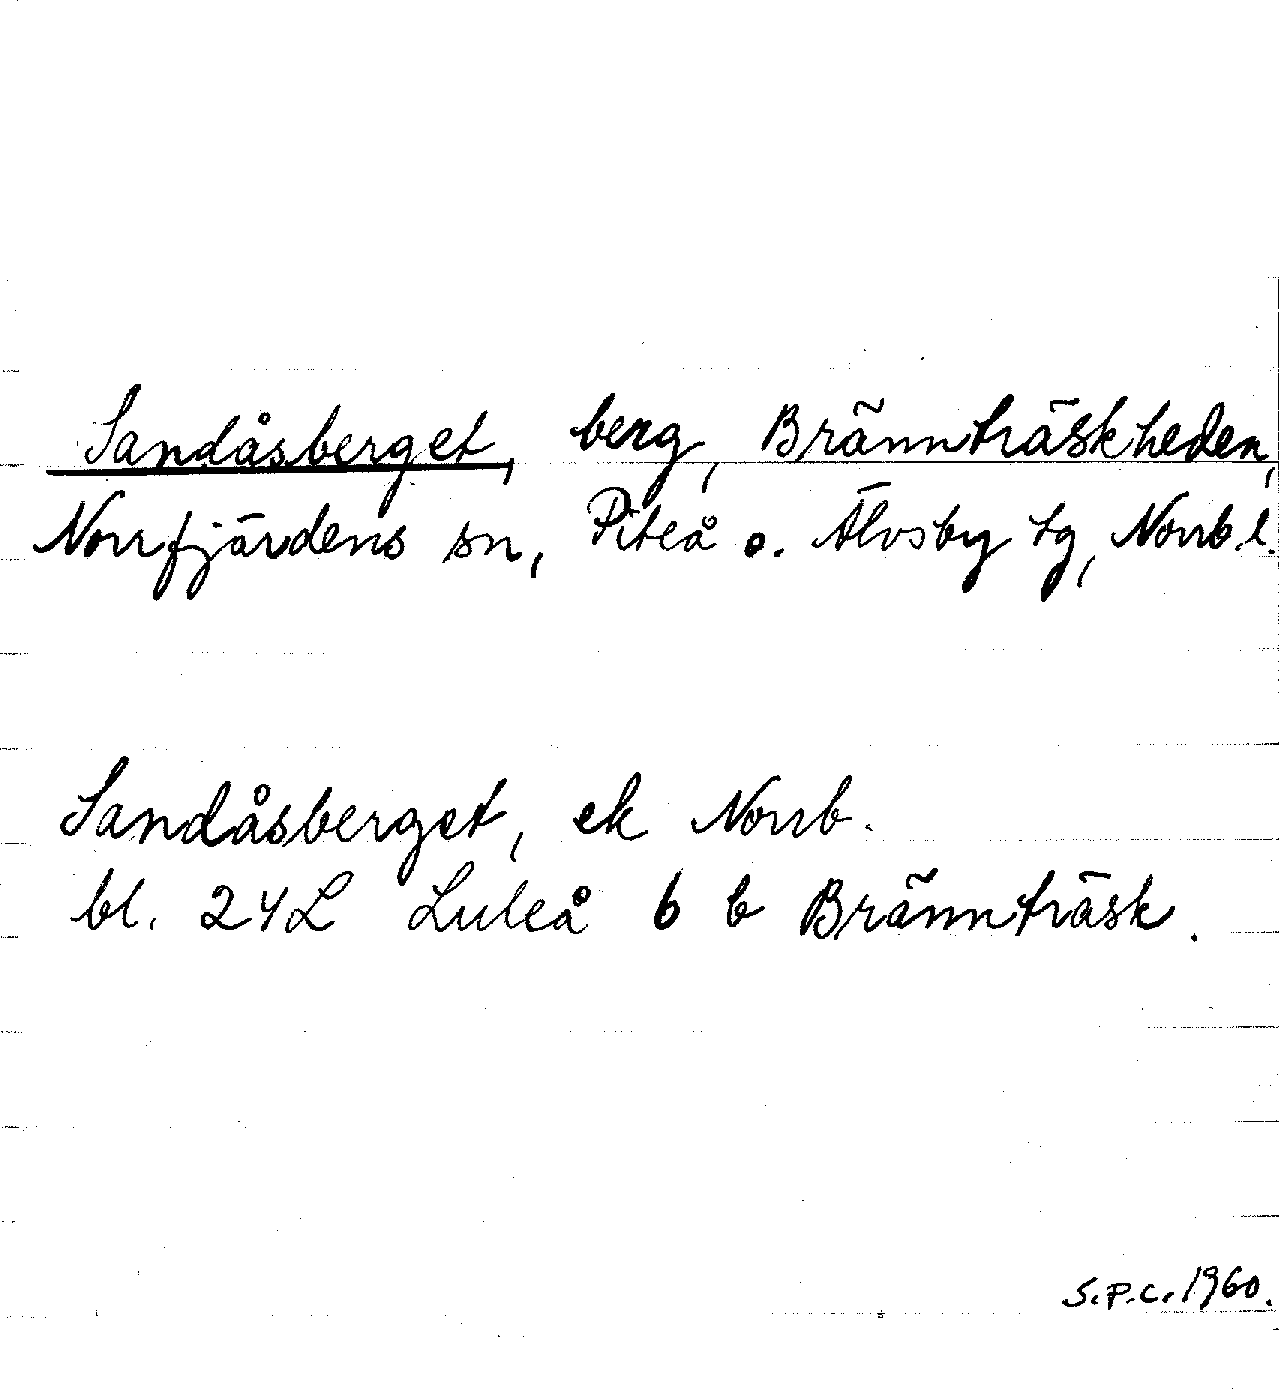 Sandåsberget, berg, Brännträskheden,
Norrfjärdens sn, Piteå o. Älvsby tg, Norrb.l.
Sandåsberget, ek Norrb.
bl. 24L Luleå 6 b Brännträsk.
S.P.C. 1960.